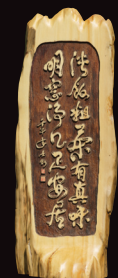 淡饭粗茶有真味
明窗净几是安居